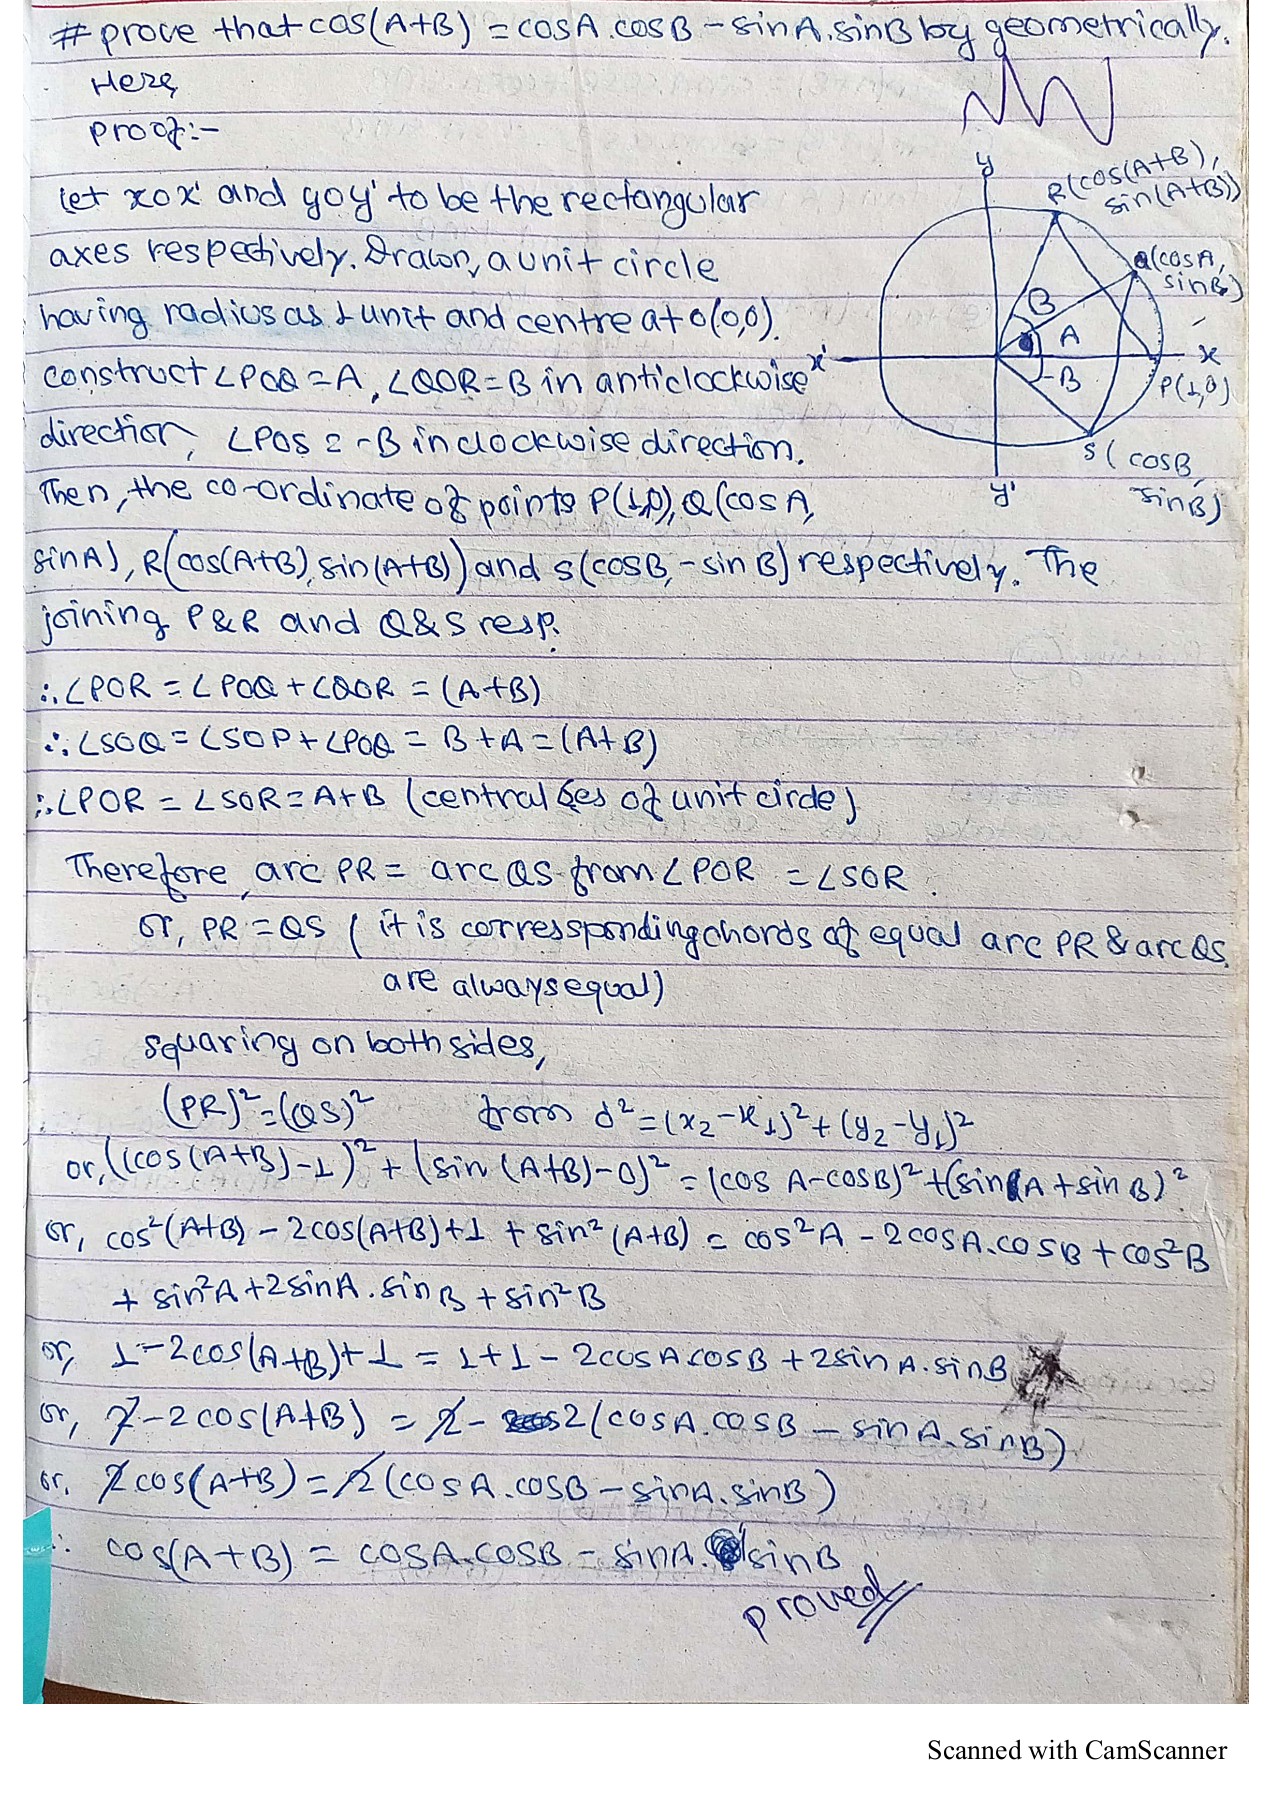 # prove that cos(A+B) = cosA.cosB - sinA.sinB by geometrically.
Here,
proof:-
Let xox' and yoy' to be the rectangular
axes respectively. Drawn, a unit circle
having radius as 1 unit and centre at o(0,0).
construct ∠POQ = A, ∠QOR = B in anticlockwise
direction, ∠POS = -B in clockwise direction.
Then, the co-ordinate of points P(1,0), Q(cosA,
sinA), R(cos(A+B), sin(A+B)) and S(cosB, -sinB) respectively. The
joining P&R and Q&S resp.
y
R(cos(A+B),
sin(A+B))
Q(cosA,
sinB)
B
A
x'
x
-B
P(1,0)
S(cosB,
-sinB)
y'
∴ ∠POR = ∠POQ + ∠QOR = (A+B)
∴ ∠SOQ = ∠SOP + ∠POQ = B + A = (A+B)
∴ ∠POR = ∠SOR = A+B (central ∠es of unit circle)
Therefore, arc PR = arc QS from ∠POR = ∠SOR.
or, PR = QS ( it is corresspondingchords of equal arc PR & arc QS.
are always equal)
squaring on both sides,
(PR)² = (QS)² from d² = (x₂-x₁)² + (y₂-y₁)²
or, ((cos(A+B)-1)² + (sin(A+B)-0)² = (cos A-cosB)² + (sin A + sin B)²
or, cos²(A+B) - 2cos(A+B)+1 + sin²(A+B) = cos²A - 2cosA.cosB + cos²B
+ sin²A + 2sinA.sinB + sin²B
or, 1-2cos(A+B)+1 = 1+1 - 2cosA.cosB + 2sinA.sinB
or, 2-2cos(A+B) = 2- 2(cosA.cosB - sinA.sinB)
or, 2cos(A+B) = 2(cosA.cosB - sinA.sinB)
∴ cos(A+B) = cosA.cosB - sinA.sinB
proved
Scanned with CamScanner